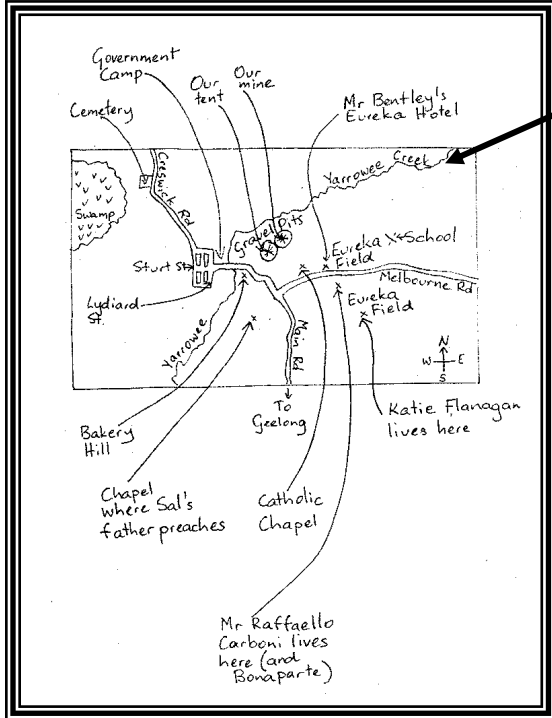 Government
Camp
Our
tent
Our
mine
Mr Bentley's
Eureka Hotel
Cemetery
Creswick Rd
Yarrowee Creek
Swamp
Gravel Pits
Eureka
Field
School
Sturt St
Melbourne Rd
Lydiard
St.
Eureka
Field
Yarrowee
Main Rd
N
W E
S
To
Geelong
Katie Flanagan
lives here
Bakery
Hill
Chapel
where Sal's
father preaches
Catholic
Chapel
Mr Raffaello
Carboni lives
here (and
Bonaparte)